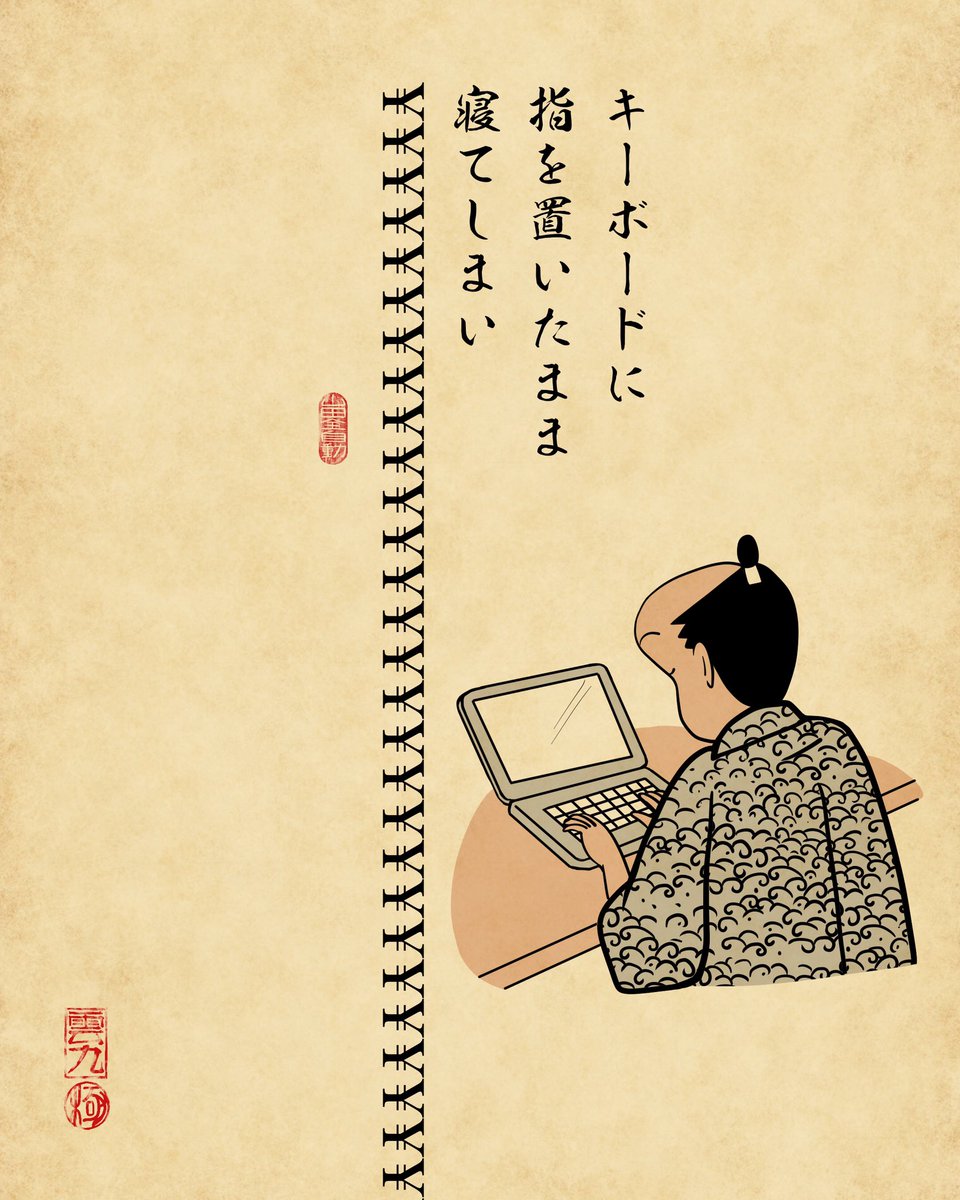 キーボードに
指を置いたまま
寝てしまい
¥¥¥¥¥¥¥¥¥¥¥¥¥¥¥¥¥¥¥¥¥¥¥¥¥¥¥¥